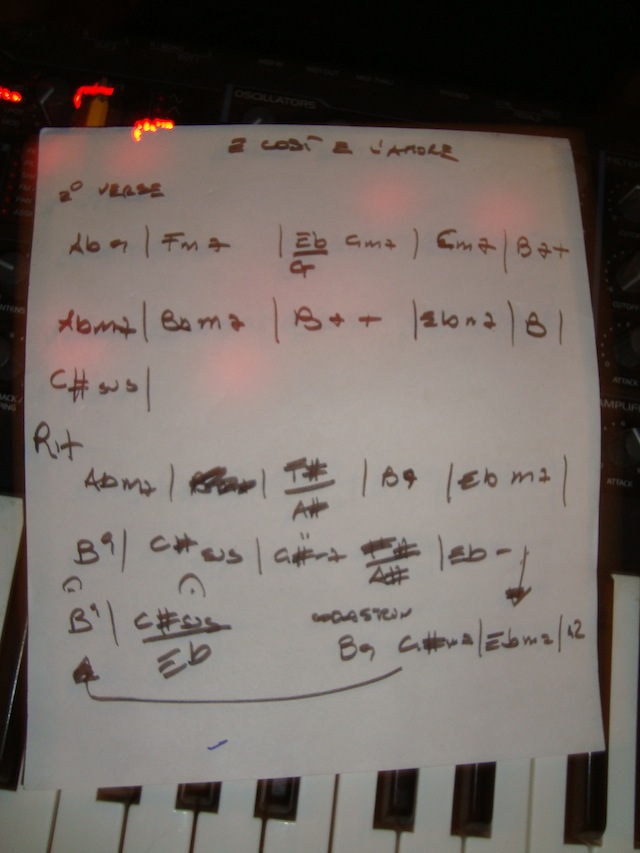 OSCILLATORS
E COSÌ E L'AMORE
2° VERSE
Ab9 | Fm7 | Eb/G Gm7 | Cm7 | B7+
Abm7 | Bbm7 | B7+ | Ebm7 | B |
C# sus |
Rit
Abm7 | | F#/A# | B9 | Ebm7 |
B9 | C# sus | G#-7 F#/A# | Eb-
B9 | C#sus/Eb
B9 G#m7 | Ebm7 |
ATTACK
ATTACK